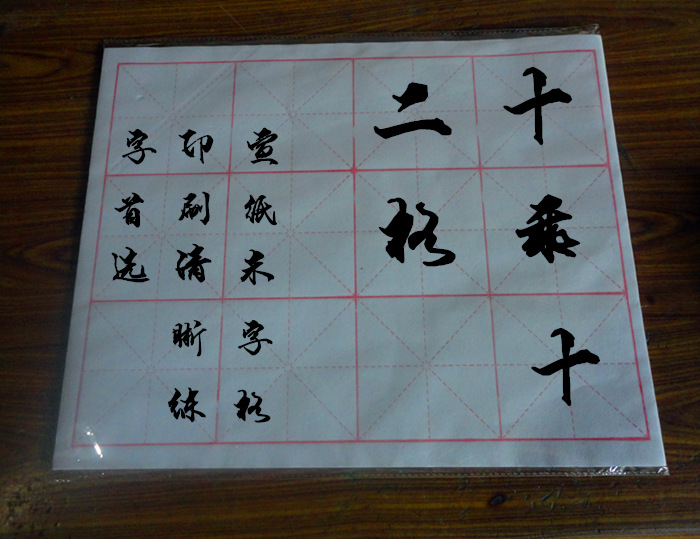 十乘十
二格
宣纸米字格
印刷清晰练
字首选